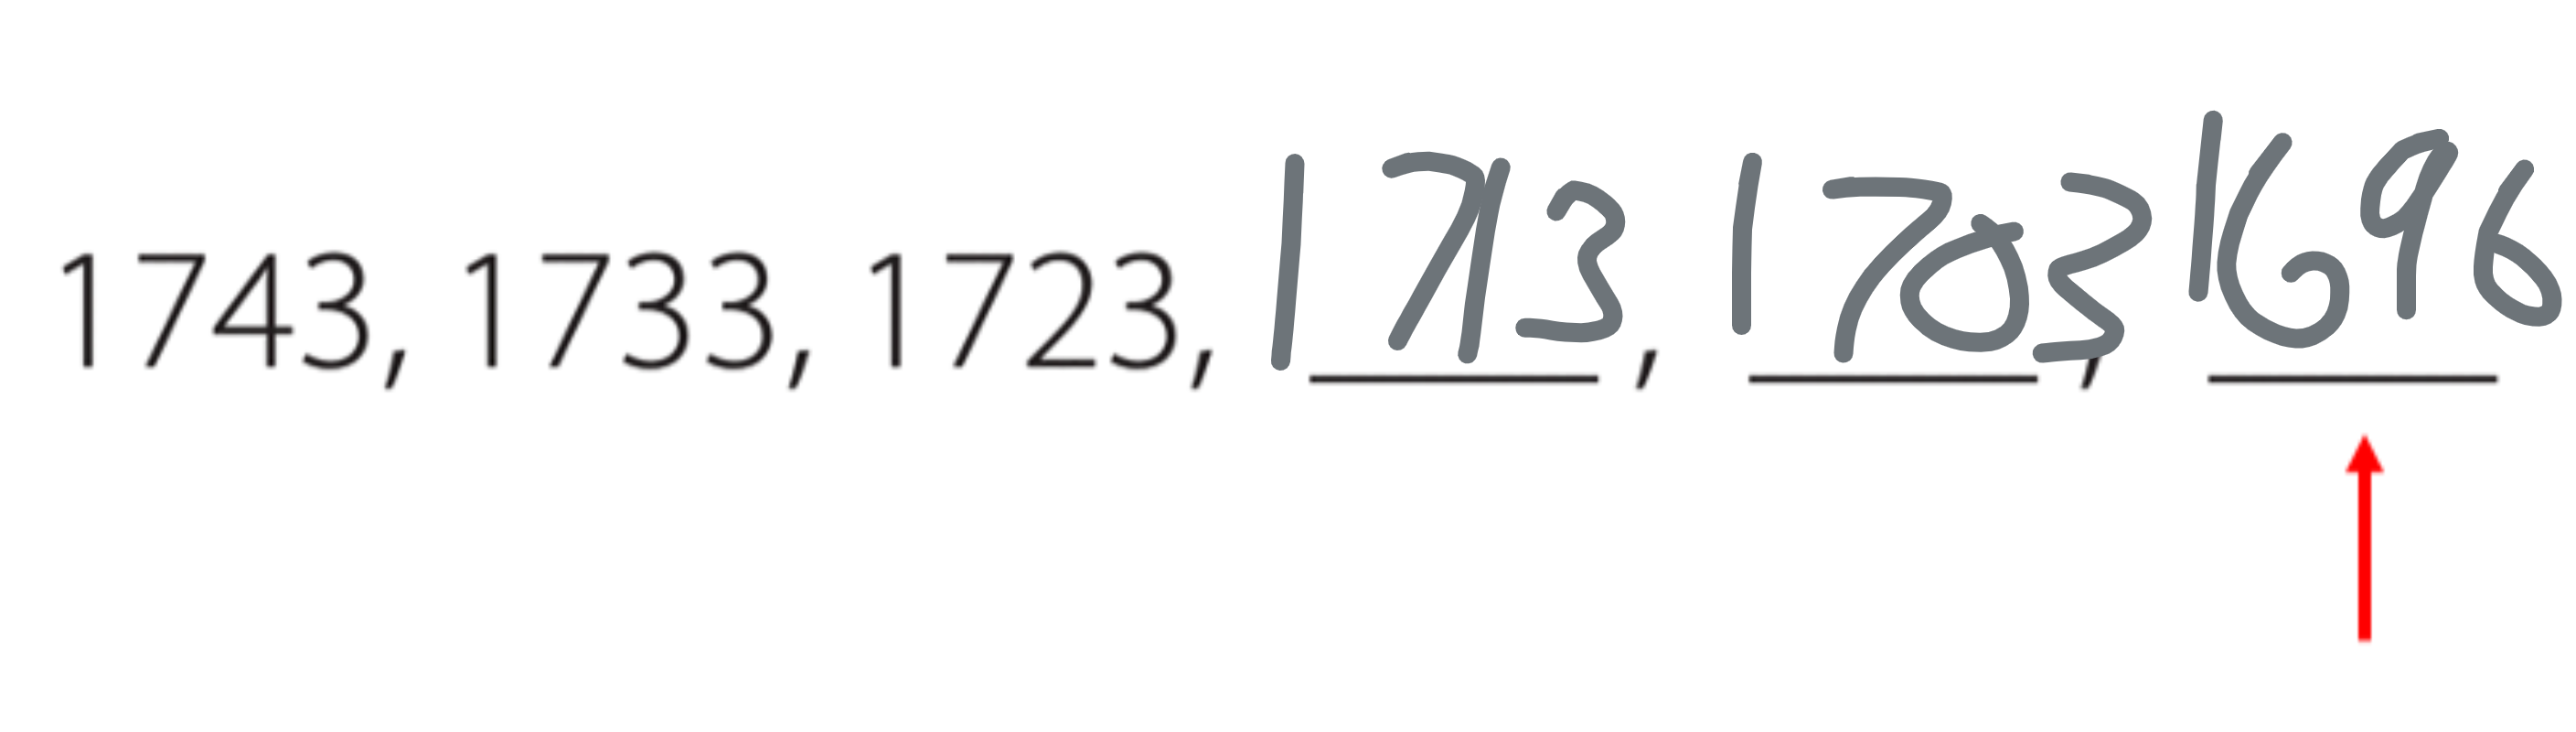 1743, 1733, 1723, 1713, 1703, 1696